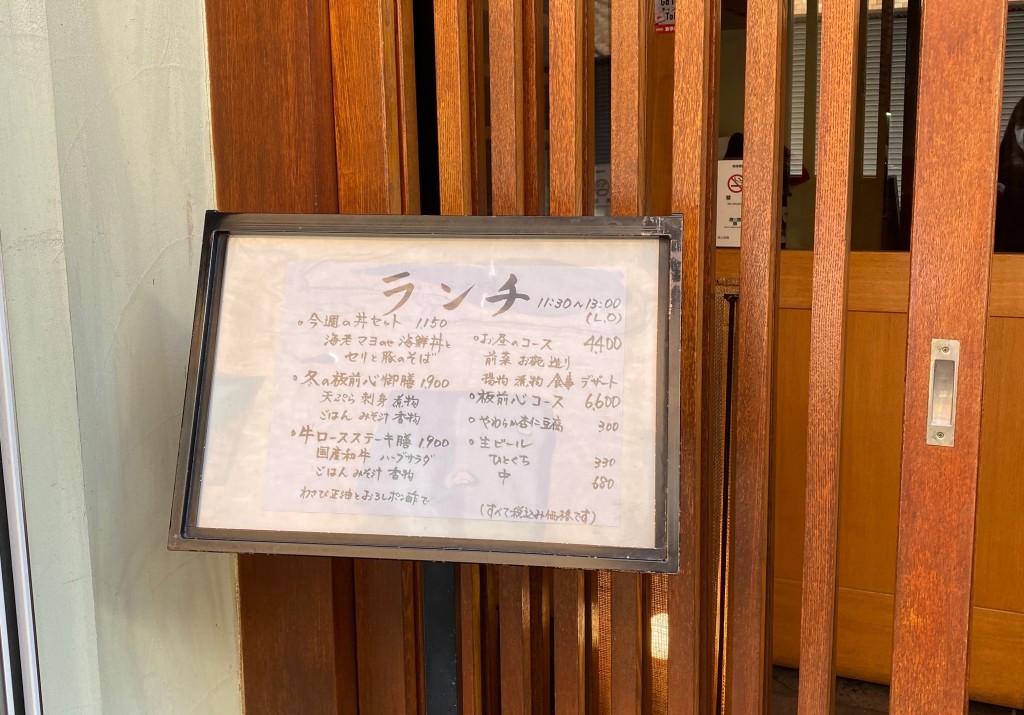 ランチ 11:30〜13:00
(L.O)
。今週の丼セット 1,150
海老マヨのせ海鮮丼と
セリと豚のそば
。冬の板前心御膳 1,900
天ぷら 刺身 煮物
ごはん みそ汁 香物
。牛ロースステーキ膳 1,900
国産和牛 ハーブサラダ
ごはん みそ汁 香物
わさび正油とおろしポン酢で
。お昼のコース 4,400
前菜 お椀 造り
揚物 煮物 食事 デザート
。板前心コース 6,600
。やわらか杏仁豆腐 300
。生ビール
ひとくち 330
中 680
(すべて税込み価格です)